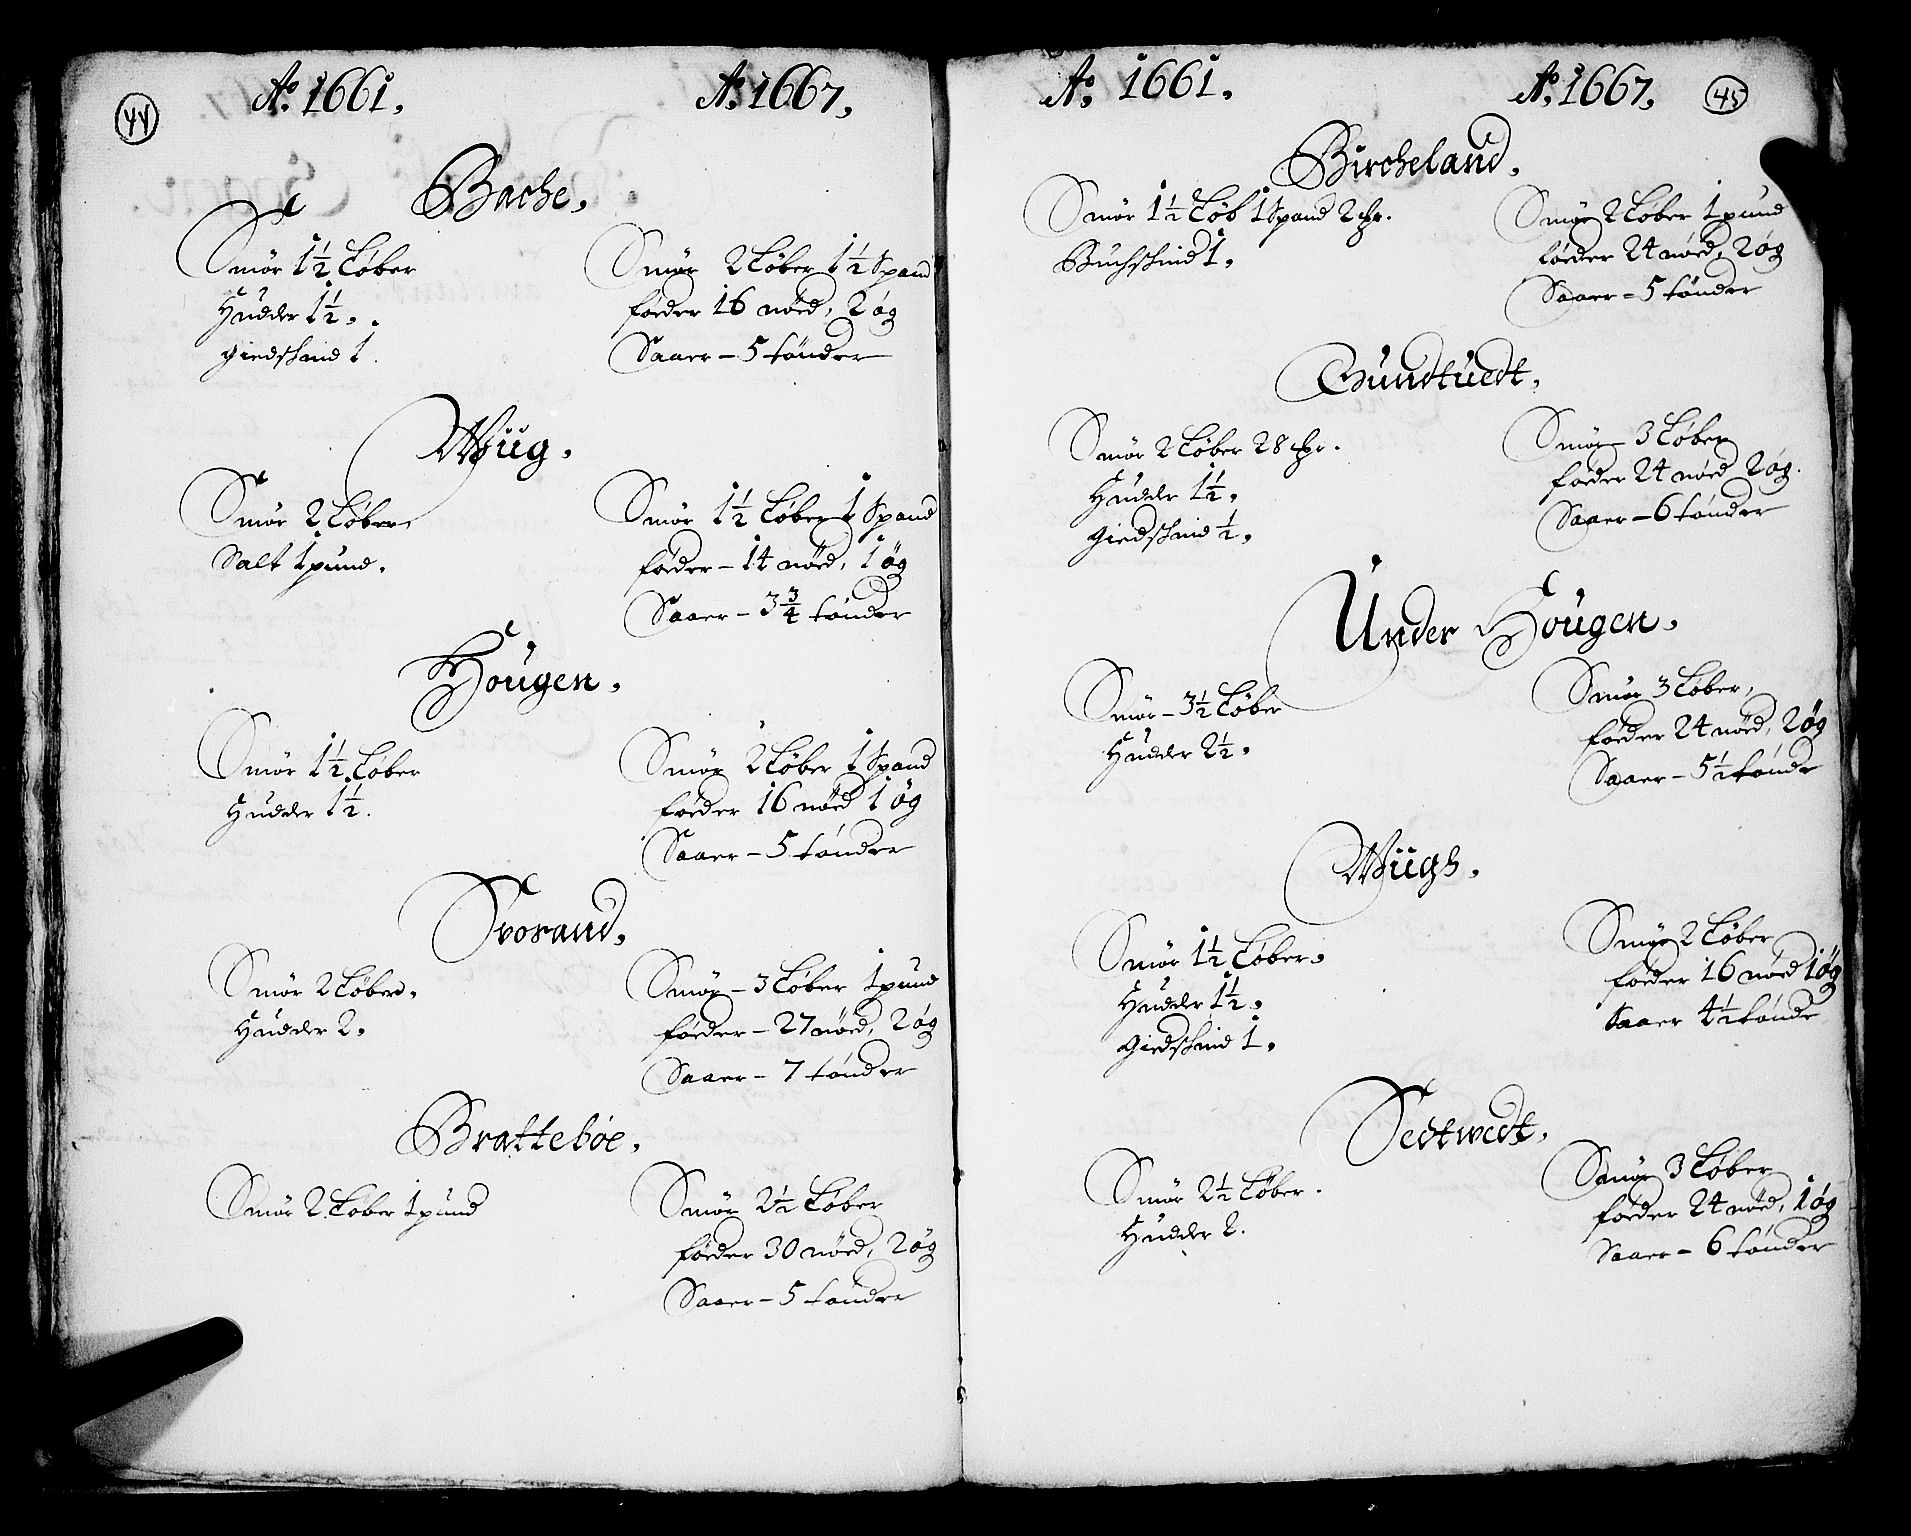 44
Ao. 1661. Ao. 1667.
Bache.
Smör 1½ Löber
Hudder 1½.
giedskind 1.
Smör 2 Löber 1½ Spand
föeder 16 nöed, 2 øg
Saaer - 5 tönder
Wiig.
Smör 2 Löber
Salt 1 pund.
Smör 1½ Löber 1 Spand
föeder - 14 nöed, 1 øg
Saaer - 3¾ tönder
Hougen.
Smör 1½ Löber
Hudder 1½.
Smör 2 Löber 1 Spand
föeder 16 nöed 1 øg
Saaer - 5 tönder
Svorand.
Smör 2 Löber.
Hudder 2.
Smör - 3 Löber 1 pund
föeder - 27 nöed, 2 øg
Saaer - 7 tönder
Brattebøe.
Smör 2 Löber 1 pund
Smör 2½ Löber
föeder 30 nöed, 2 øg
Saaer - 5 tönder
45
Ao. 1661. Ao. 1667.
Bircheland.
Smör 1½ Löb 1 Spand 2
Buchskind 1.
Smör 2 Löber 1 pund
föeder 24 nöed, 2 øg
Saaer - 5 tönder
Gundtuedt.
Smör 2 Löber 28
Hudder 1½.
giedskind ½.
Smör 3 Löber
föeder 24 nöed 2 øg.
Saaer - 6 tönder
Under Hougen.
Smör - 3½ Löber
Hudder 2½.
Smör 3 Löber,
föeder 24 nöed, 2 øg
Saaer - 5½ tönde
Wiigh.
Smör 1½ Löber.
Hudder 1½.
Giedskind 1.
Smör 2 Löber
föeder 16 nöed 1 øg
Saaer 4½ tönde
Sedtwedt.
Smör 2½ Löber.
Hudder 2.
Smör 3 Löber
föeder 24 nöed, 1 øg
Saaer - 6 tönder